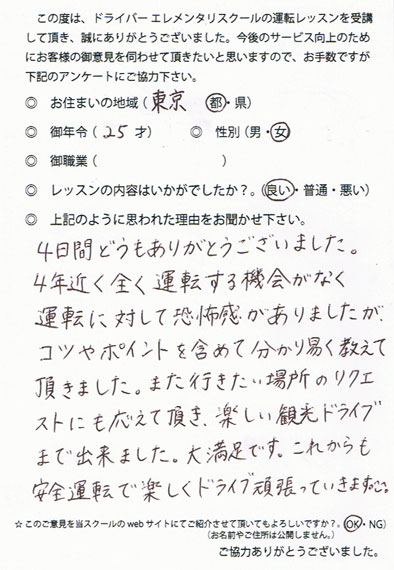 この度は、ドライバーエレメンタリスクールの運転レッスンを受講
して頂き、誠にありがとうございました。今後のサービス向上のため
にお客様の御意見を伺わせて頂きたいと思いますので、お手数ですが
下記のアンケートにご協力下さい。
◎ お住まいの地域(東京 都・県)
◎ 御年令(25才) ◎ 性別(男・女)
◎ 御職業( )
◎ レッスンの内容はいかがでしたか?。(良い・普通・悪い)
◎ 上記のように思われた理由をお聞かせ下さい。
4日間どうもありがとうございました。
4年近く全く運転する機会がなく
運転に対して恐怖感がありましたが、
コツやポイントを含めて分かり易く教えて
頂きました。また行きたい場所のリクエ
ストにも応えて頂き、楽しい観光ドライブ
まで出来ました。大満足です。これからも
安全運転で楽しくドライブ頑張っていきます
☆このご意見を当スクールのwebサイトにてご紹介させて頂いてもよろしいですか?。(OK・NG)
(お名前やご住所は公開しません。)
ご協力ありがとうございました。